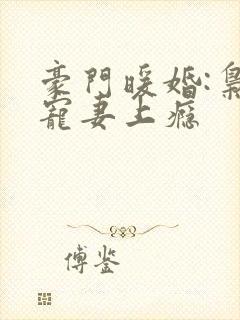 豪門暖婚:梟
寵妻上癮
傅鉴